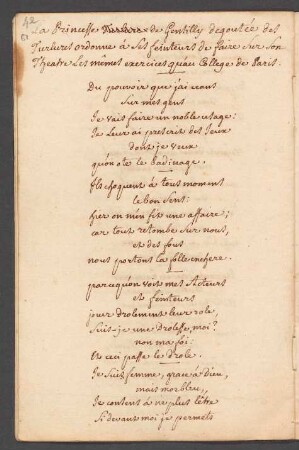 La Princesse de Gentilly degoutée des
Turlures ordonne à ses feinteurs de faire sur son
Theatre Les mêmes exercices qu'au College de Paris.
Du pouvoir que j'ai ceans
sur mes gens
Je vais faire un noble usage:
Je Leur ai prescrit des Jeux
dont je veux
qu'on ote le badinage.
Ils choquent à tous moment
le bon sens:
hier on m'en fit une affaire;
car tout retombe sur nous,
et des fous
nous portons la folle enchere.
parcequ'on voit mes Acteurs
et feinteurs
jouer drolement leur role,
Suis-je une Drolesse, moi?
non ma foi:
Et ceci passe le drole.
Je suis femme, grace à Dieu,
mais morbleu,
Je consens à ne plus l'être
Si devant moi je permets